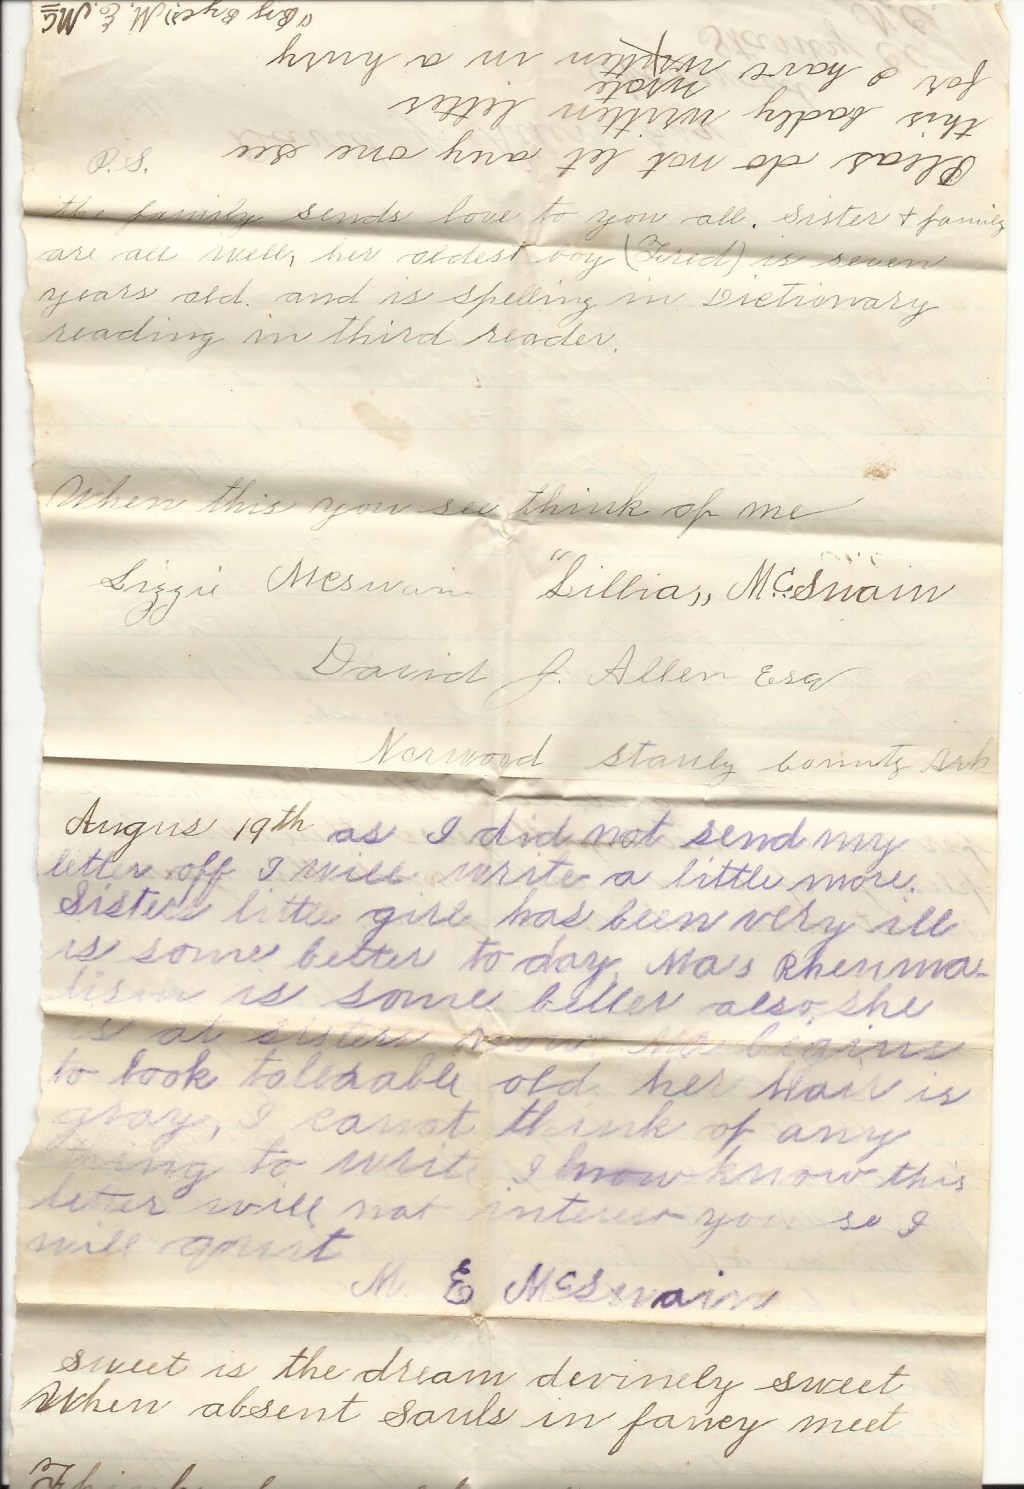 Pleas do not let any one see
this badly written letter
for I have wrote written in a hurry
(By Bye) M. E. Mc
P.S.
the family sends love to you all. Sister & family
are all well, her oldest boy (Fred) is seven
years old. and is spelling in Dictionary
reading in third reader.
When this you see think of me
Lizzie McSwain "Lillia„ Mc.Swain
David J. Allen Esq
Norwood Stanly County Ark
Augus 19th as I did not send my
letter off I will write a little more.
Sisters little girl has been very ill
is some better to day, Ma's Rheuma-
tism is some better also, she
is at sisters now. Ma begins
to look tolerable old her hair is
gray, I cannot think of any
thing to write I know know this
letter will not interest you so I
will quit
M. E McSwain
Sweet is the dream devinely sweet
When absent Souls in fancy meet